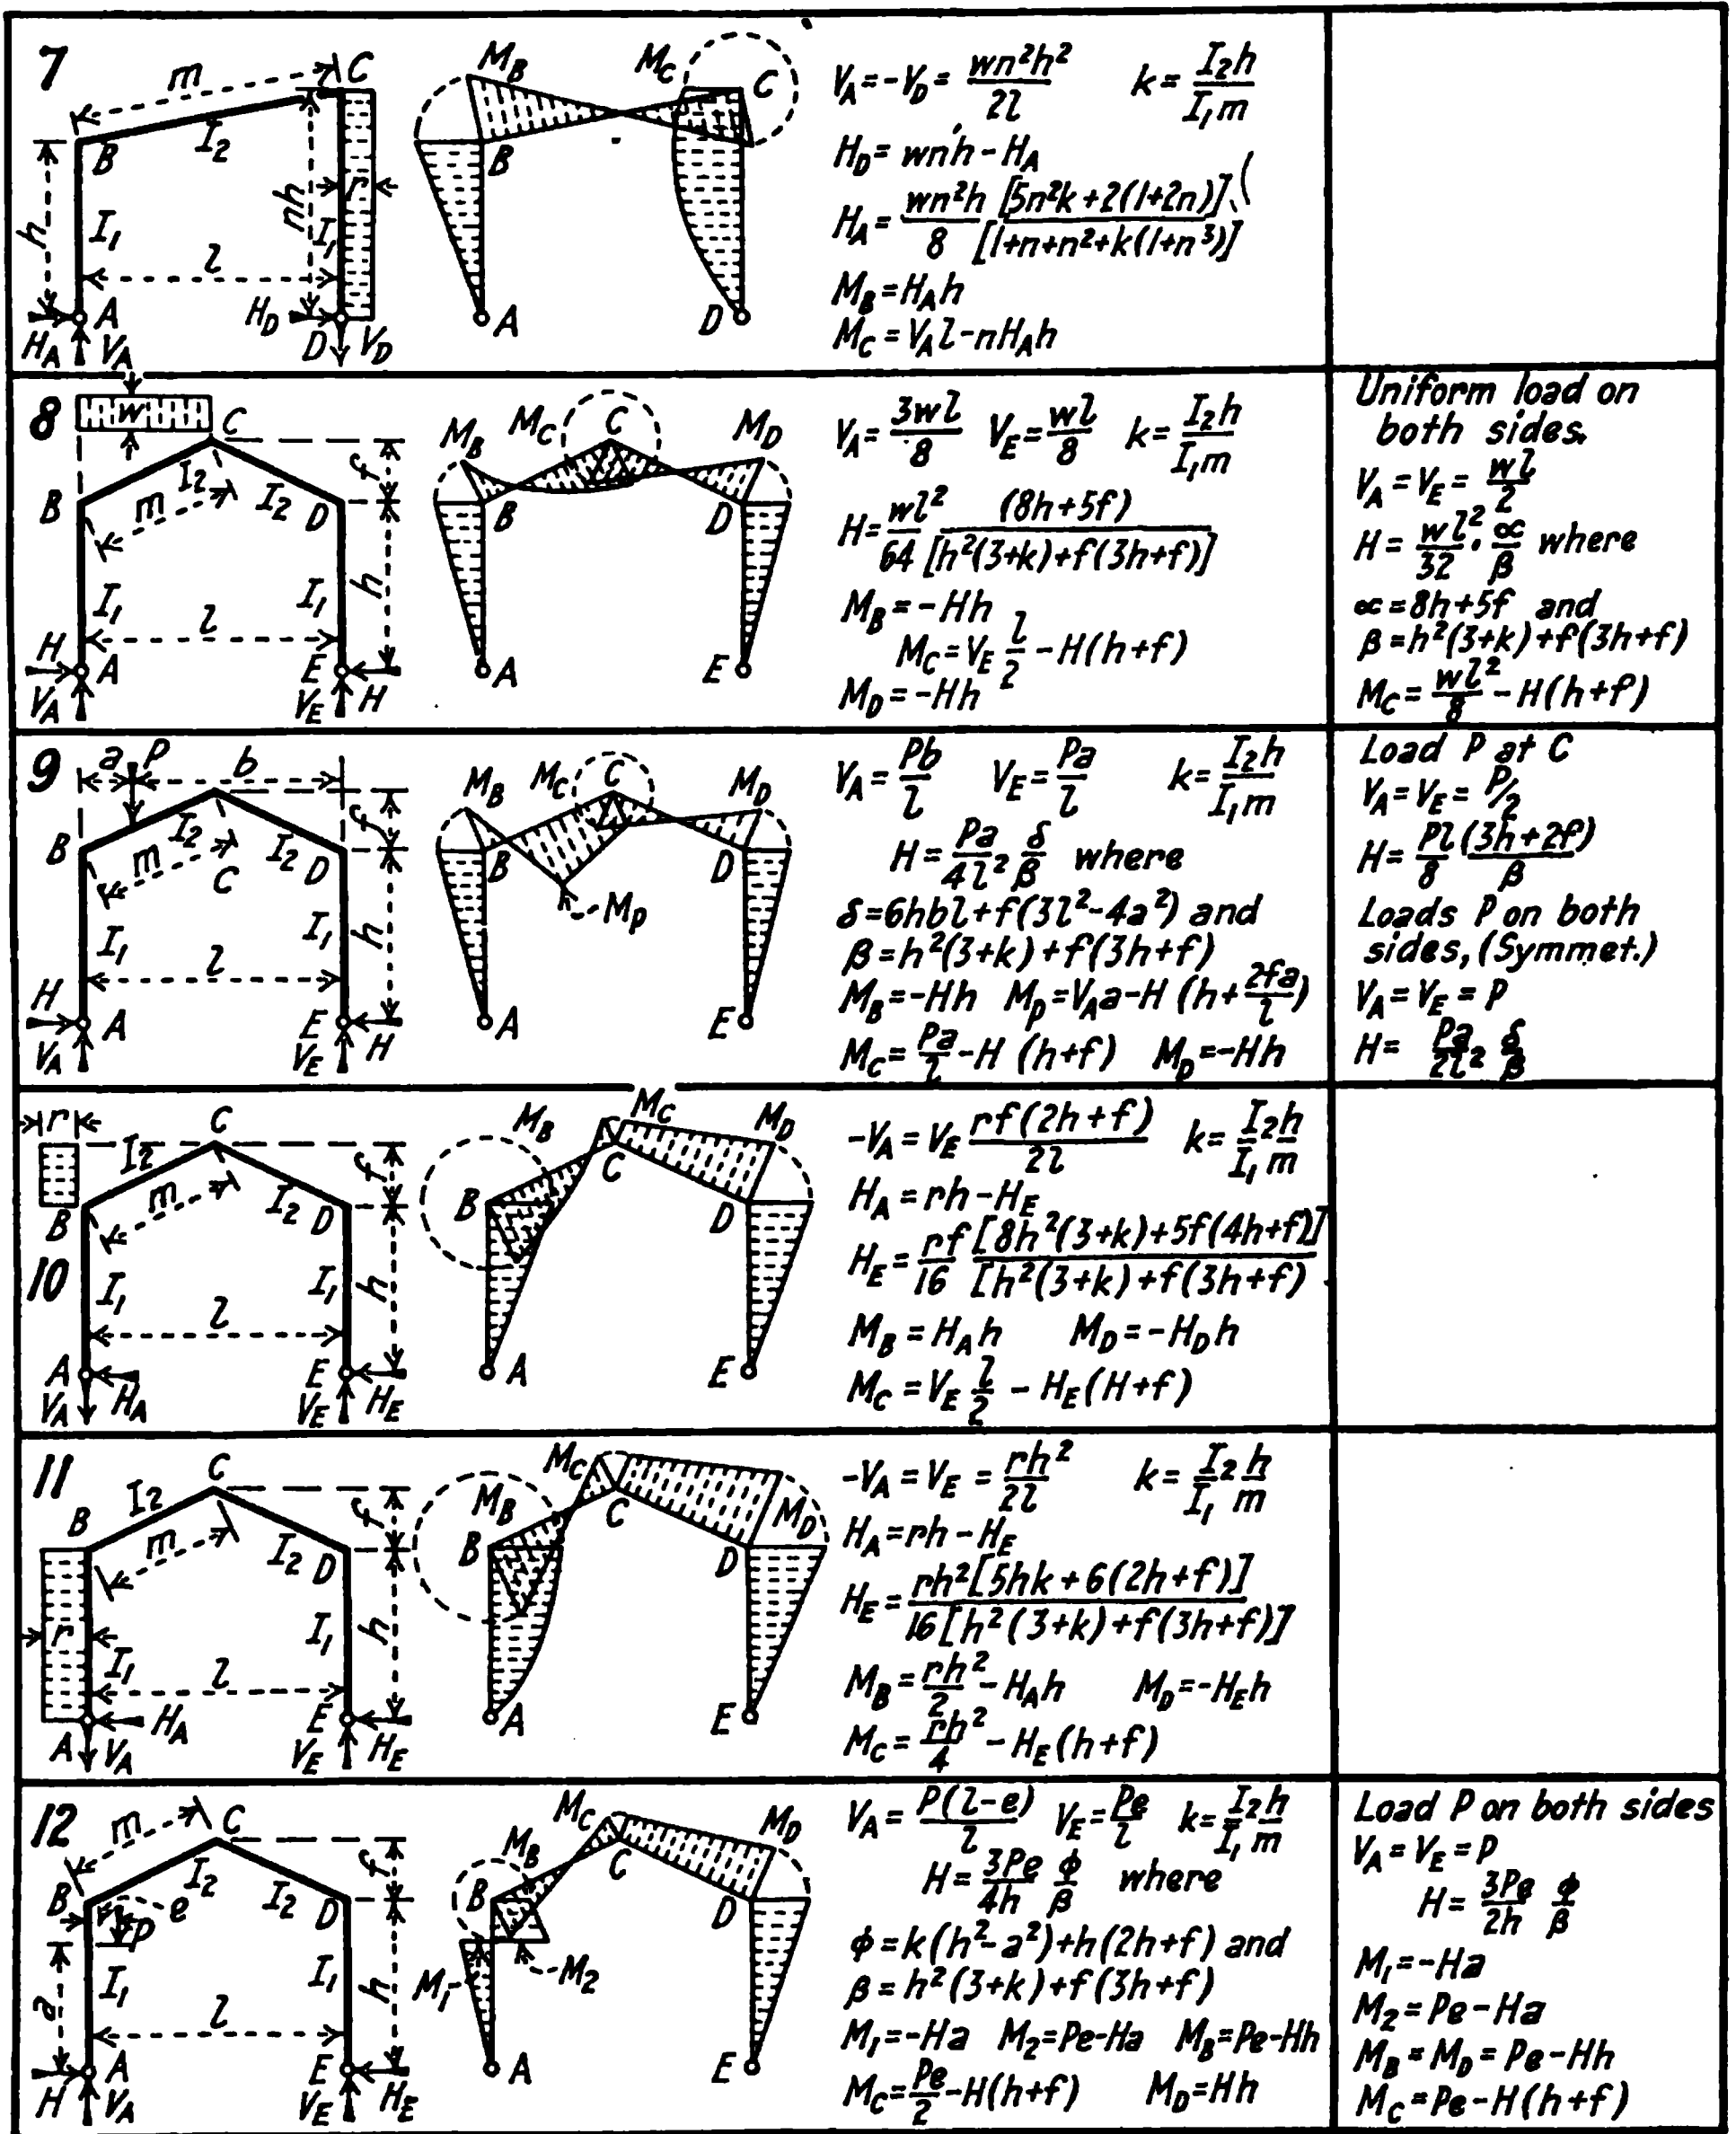 7
m
C
B
I₂
h
I₁
nh
I₁
r
l
H_A
A
V_A
H_D
D
V_D
M_B
M_C
C
B
A
D
V_A = -V_D = wn²h²/2l k = I₂h/I₁m
H_D = wnh - H_A
H_A = wn²h/8 [5n²k+2(1+2n)]/[1+n+n²+k(1+n³)]
M_B = H_A h
M_C = V_A l - nH_A h
8
w
C
f
B
I₂
m
I₂
D
I₁
I₁
h
l
H
A
E
V_A
V_E
H
M_B
M_C
C
M_D
B
D
A
E
V_A = 3wl/8 V_E = wl/8 k = I₂h/I₁m
H = wl²/64 (8h+5f)/[h²(3+k)+f(3h+f)]
M_B = -Hh
M_C = V_E l/2 - H(h+f)
M_D = -Hh
Uniform load on
both sides.
V_A = V_E = wl/2
H = wl²/32 · ∝/β where
∝ = 8h+5f and
β = h²(3+k)+f(3h+f)
M_C = wl²/8 - H(h+f)
9
a P b
f
B
I₂
m
C
I₂
D
I₁
I₁
h
l
H
A
E
V_A
V_E
H
M_B
M_C
C
M_D
B
D
M_P
A
E
V_A = Pb/l V_E = Pa/l k = I₂h/I₁m
H = Pa/4l² δ/β where
δ = 6hbl+f(3l²-4a²) and
β = h²(3+k)+f(3h+f)
M_B = -Hh M_P = V_A a - H (h+2fa/l)
M_C = Pa/l - H (h+f) M_D = -Hh
Load P at C
V_A = V_E = P/2
H = Pl/8 (3h+2f)/β
Loads P on both
sides, (Symmet.)
V_A = V_E = P
H = Pa/2l² δ/β
10
r
C
I₂
f
m
B
I₂
D
I₁
I₁
h
l
A
E
V_A
H_A
V_E
H_E
M_B
M_C
M_D
C
B
D
A
E
-V_A = V_E rf(2h+f)/2l k = I₂h/I₁m
H_A = rh - H_E
H_E = rf/16 [8h²(3+k)+5f(4h+f)]/[h²(3+k)+f(3h+f)
M_B = H_A h M_D = -H_D h
M_C = V_E l/2 - H_E(H+f)
11
C
I₂
f
B
m
I₂
D
r
I₁
I₁
h
l
H_A
E
A
V_A
V_E
H_E
M_C
M_B
C
M_D
B
D
A
E
-V_A = V_E = rh²/2l k = I₂h/I₁m
H_A = rh - H_E
H_E = rh²[5hk+6(2h+f)]/16[h²(3+k)+f(3h+f)]
M_B = rh²/2 - H_A h M_D = -H_E h
M_C = rh²/4 - H_E(h+f)
12
m
C
f
B
I₂
e
I₂
D
P
I₁
I₁
h
a
l
A
E
H
V_A
V_E
H_E
M_C
M_B
C
M_D
B
D
M₁
M₂
A
E
V_A = P(l-e)/l V_E = Pe/l k = I₂h/I₁m
H = 3Pe/4h φ/β where
φ = k(h²-a²)+h(2h+f) and
β = h²(3+k)+f(3h+f)
M₁ = -Ha M₂ = Pe-Ha M_B = Pe-Hh
M_C = Pe/2 - H(h+f) M_D = Hh
Load P on both sides
V_A = V_E = P
H = 3Pe/2h φ/β
M₁ = -Ha
M₂ = Pe-Ha
M_B = M_D = Pe-Hh
M_C = Pe-H(h+f)